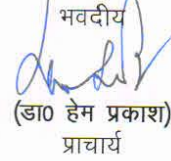 भवदीय
(डा0 हेम प्रकाश)
प्राचार्य